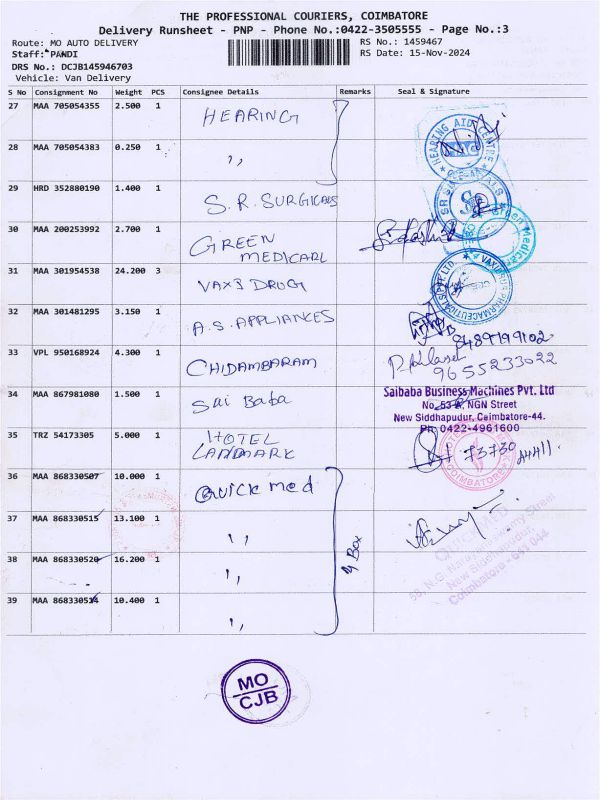 THE PROFESSIONAL COURIERS, COIMBATORE
Delivery Runsheet - PNP - Phone No.:0422-3505555 - Page No.:3
Route: MO AUTO DELIVERY RS No.: 1459467
Staff: PANDI RS Date: 15-Nov-2024
DRS No.: DCJB145946703
Vehicle: Van Delivery
S No Consignment No Weight PCS Consignee Details Remarks Seal & Signature
27 MAA 705054355 2.500 1 HEARING
28 MAA 705054383 0.250 1 ,, HEARING AID CENTRE
29 HRD 352880190 1.400 1 S.R. SURGICALS
30 MAA 200253992 2.700 1 GREEN MEDICARL Green Medical
31 MAA 301954538 24.200 3 VAX3 DRUG
32 MAA 301481295 3.150 1 A.S. APPLIANCES 8489199102
33 VPL 950168924 4.300 1 CHIDAMBARAM 9655233022
34 MAA 867981080 1.500 1 Sai Baba
Saibaba Business Machines Pvt. Ltd
No. 53-A, NGN Street
New Siddhapudur, Coimbatore-44.
Ph 0422-4961600
35 TRZ 54173305 5.000 1 HOTEL LANDMARK 73730 44411
COIMBATORE
36 MAA 868330507 10.000 1 Quick med
37 MAA 868330515 13.100 1 ,,
38 MAA 868330520 16.200 1 ,, 4 Box
39 MAA 868330514 10.400 1 ,,
New Siddhapudur
Coimbatore - 641 044
MO
CJB